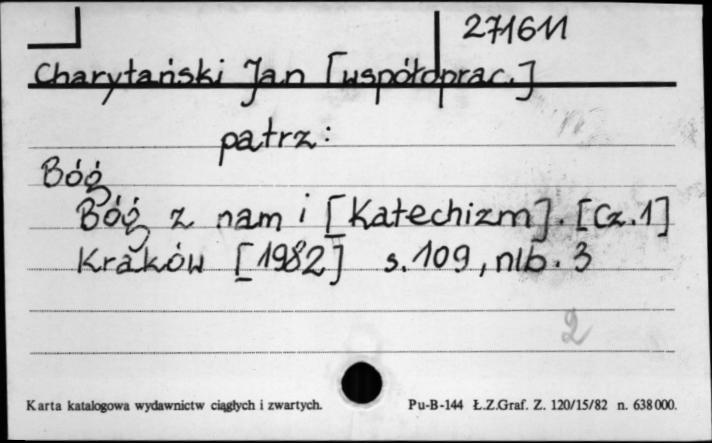 271611
Charytański Jan [współoprac.]
patrz:
Bóg
Bóg z nam i [Katechizm]. [Cz.1]
Kraków [1982] s. 109, nlb. 3
2
Karta katalogowa wydawnictw ciągłych i zwartych. Pu-B-144 Ł.Z.Graf. Z. 120/15/82 n. 638000.